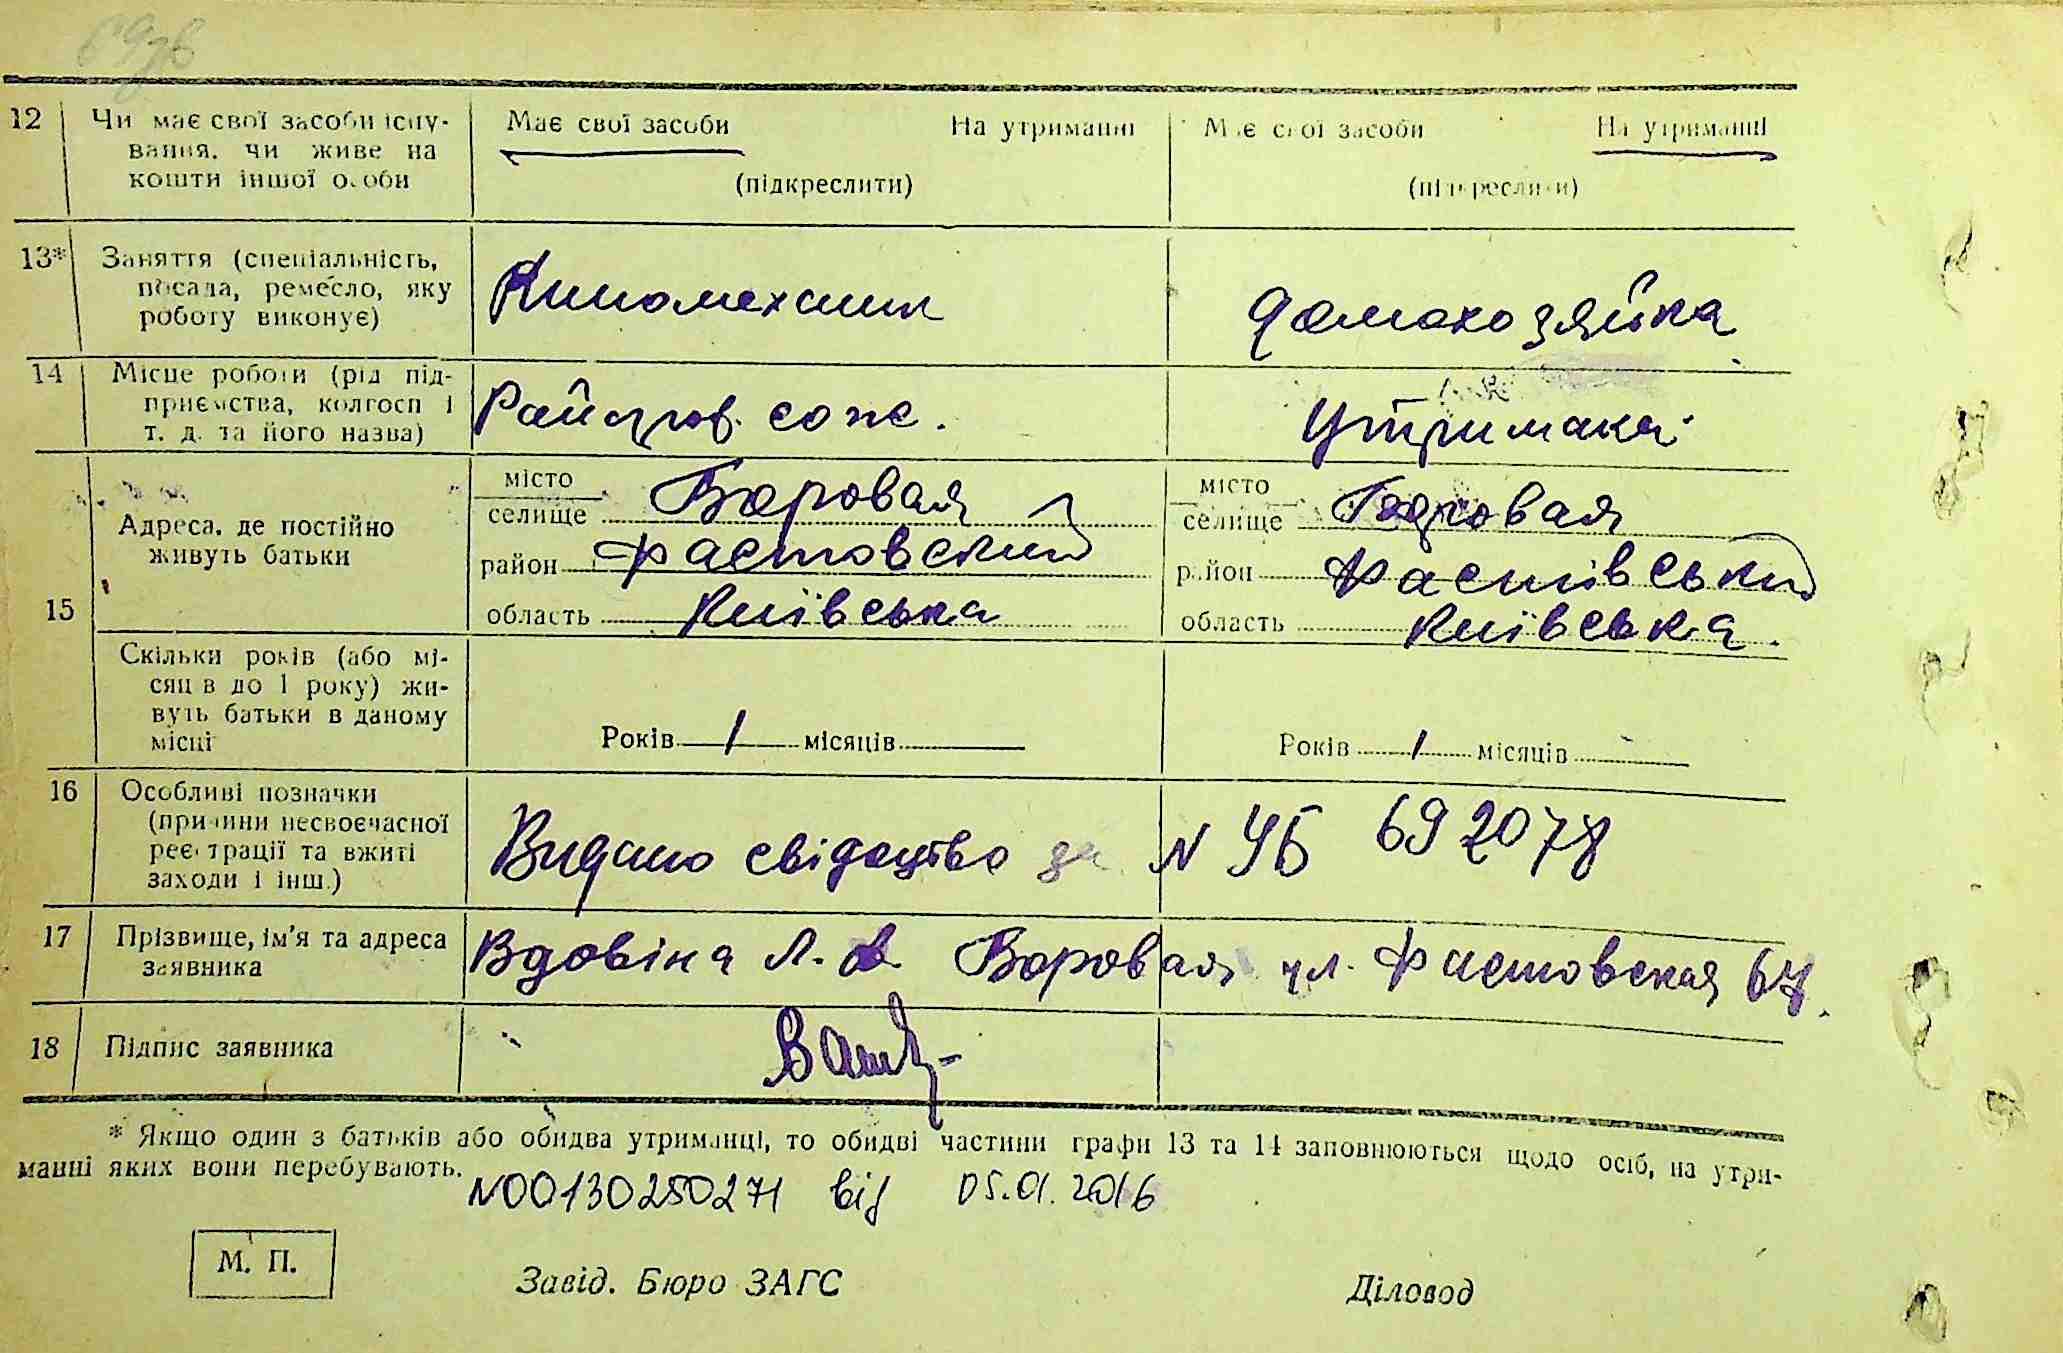 69зв
12 Чи має свої засоби існу-
вання, чи живе на
кошти іншої особи
Має свої засоби На утриманні
(підкреслити)
Має свої засоби На утриманні
(підкреслити)
13* Заняття (спеціальність,
посада, ремесло, яку
роботу виконує)
Киномеханик
домахозяйка
14 Місце роботи (рід під-
приємства, колгосп і
т. д. та його назва)
утримака
15 Адреса, де постійно
живуть батьки
місто
селище Боровая
район Фастовский
область Київська
місто
селище Боровая
район Фастівський
область Київська.
Скільки років (або мі-
сяців до 1 року) жи-
вуть батьки в даному
місці
Років 1 місяців
Років 1 місяців -
16 Особливі позначки
(причини несвоєчасної
реєстрації та вжиті
заходи і інш.)
Видано свідоцтво за N УБ 692078
17 Прізвище, ім'я та адреса
заявника
Вдовіна Л. Боровая ул. Фастовская 67.
18 Підпис заявника
* Якщо один з батьків або обидва утриманці, то обидві частини графи 13 та 14 заповнюються щодо осіб, на утри-
манні яких вони перебувають.
N00130250271 від 05.01.2016
М. П.
Завід. Бюро ЗАГС Діловод